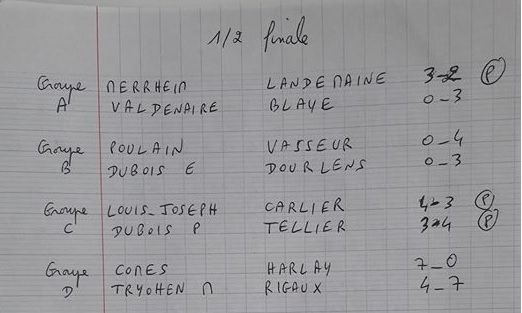 1/2 finale
Groupe MERRHEIM LANDEMAINE 3-2 (P)
A VALDENAIRE BLAYE 0-3
Groupe POULAIN VASSEUR 0-4
B DUBOIS E DOURLENS 0-3
Groupe LOUIS-JOSEPH CARLIER 4-3 (P)
C DUBOIS P TELLIER 3-4 (P)
Groupe COMES HARLAY 7-0
D TRYOHEN M RIGAUX 4-7